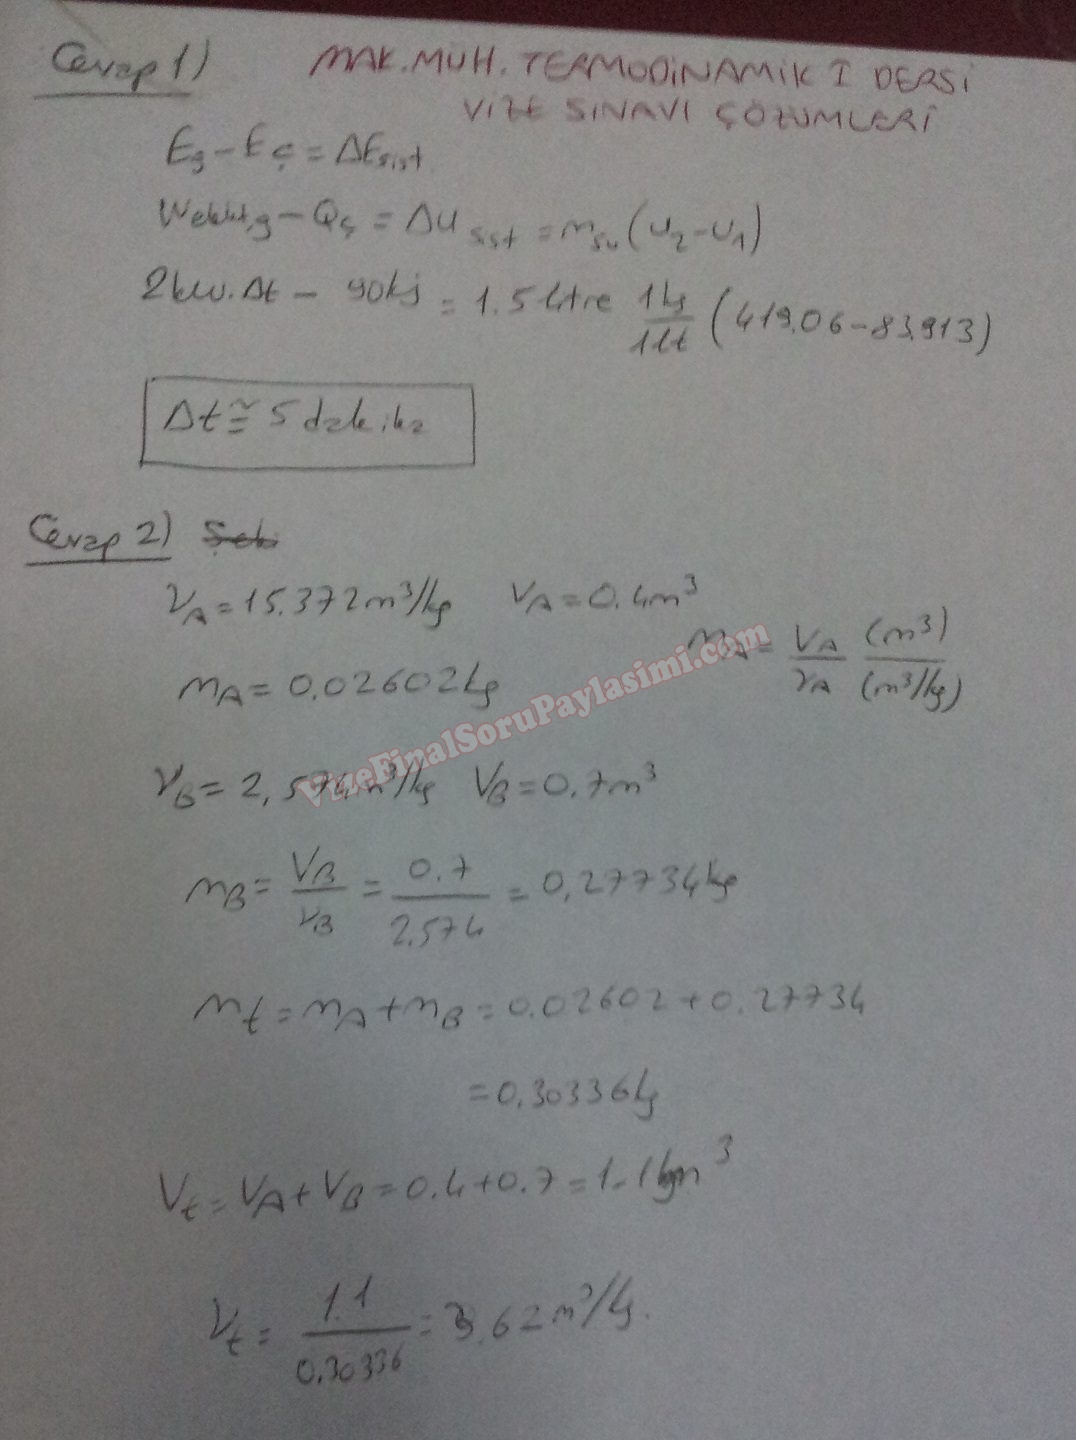 Cevap 1)
MAK. MÜH. TERMODİNAMİK I DERSİ
VİZE SINAVI ÇÖZÜMLERİ
Eg - Eç = ΔEsist
Welkt,g - Qç = ΔUsist = msu (u2 - u1)
2kw.Δt - 90kj = 1.5 litre 1kg/1lt (419.06 - 83.913)
Δt ≅ 5 dakika
Cevap 2) Şek
νA = 15.372 m³/kg VA = 0.4m³
mA = 0.02602kg mA = VA/νA (m³)/(m³/kg)
νB = 2,574 m³/kg VB = 0.7m³
mB = VB/νB = 0.7/2.574 = 0,27734kg
mt = mA + mB = 0.02602 + 0.27734
= 0.30336kg
Vt = VA + VB = 0.4 + 0.7 = 1.1 m³
νt = 1.1/0.30336 = 3.62 m³/kg.
VizeFinalSoruPaylasimi.com